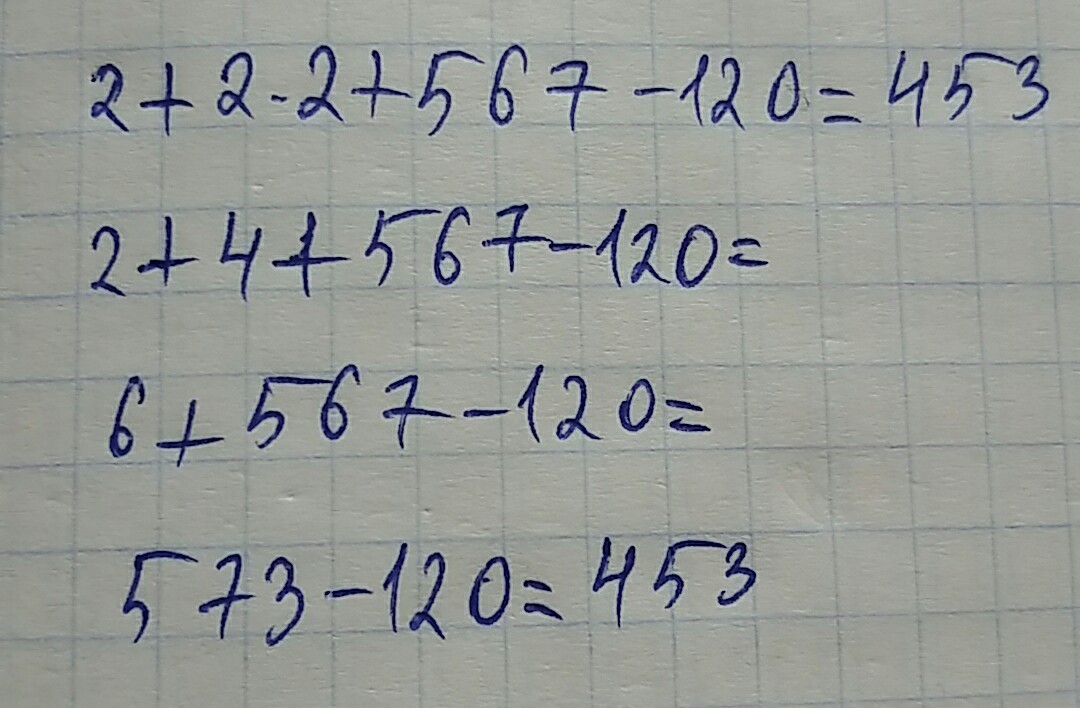 2+2·2+567-120=453
2+4+567-120=
6+567-120=
573-120=453